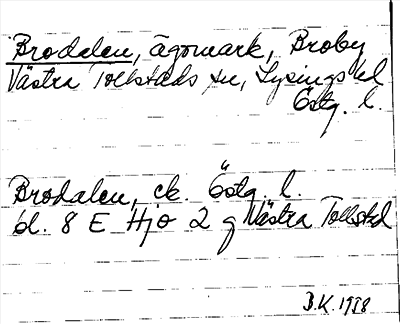 Brodalen, ägomark, Broby
Västra Tollstads sn, Lysings hd
Östg. l.
Brodalen, ek. Östg. l.
bl. 8 E Hjo 2 g Västra Tollstad
B.K. 1988